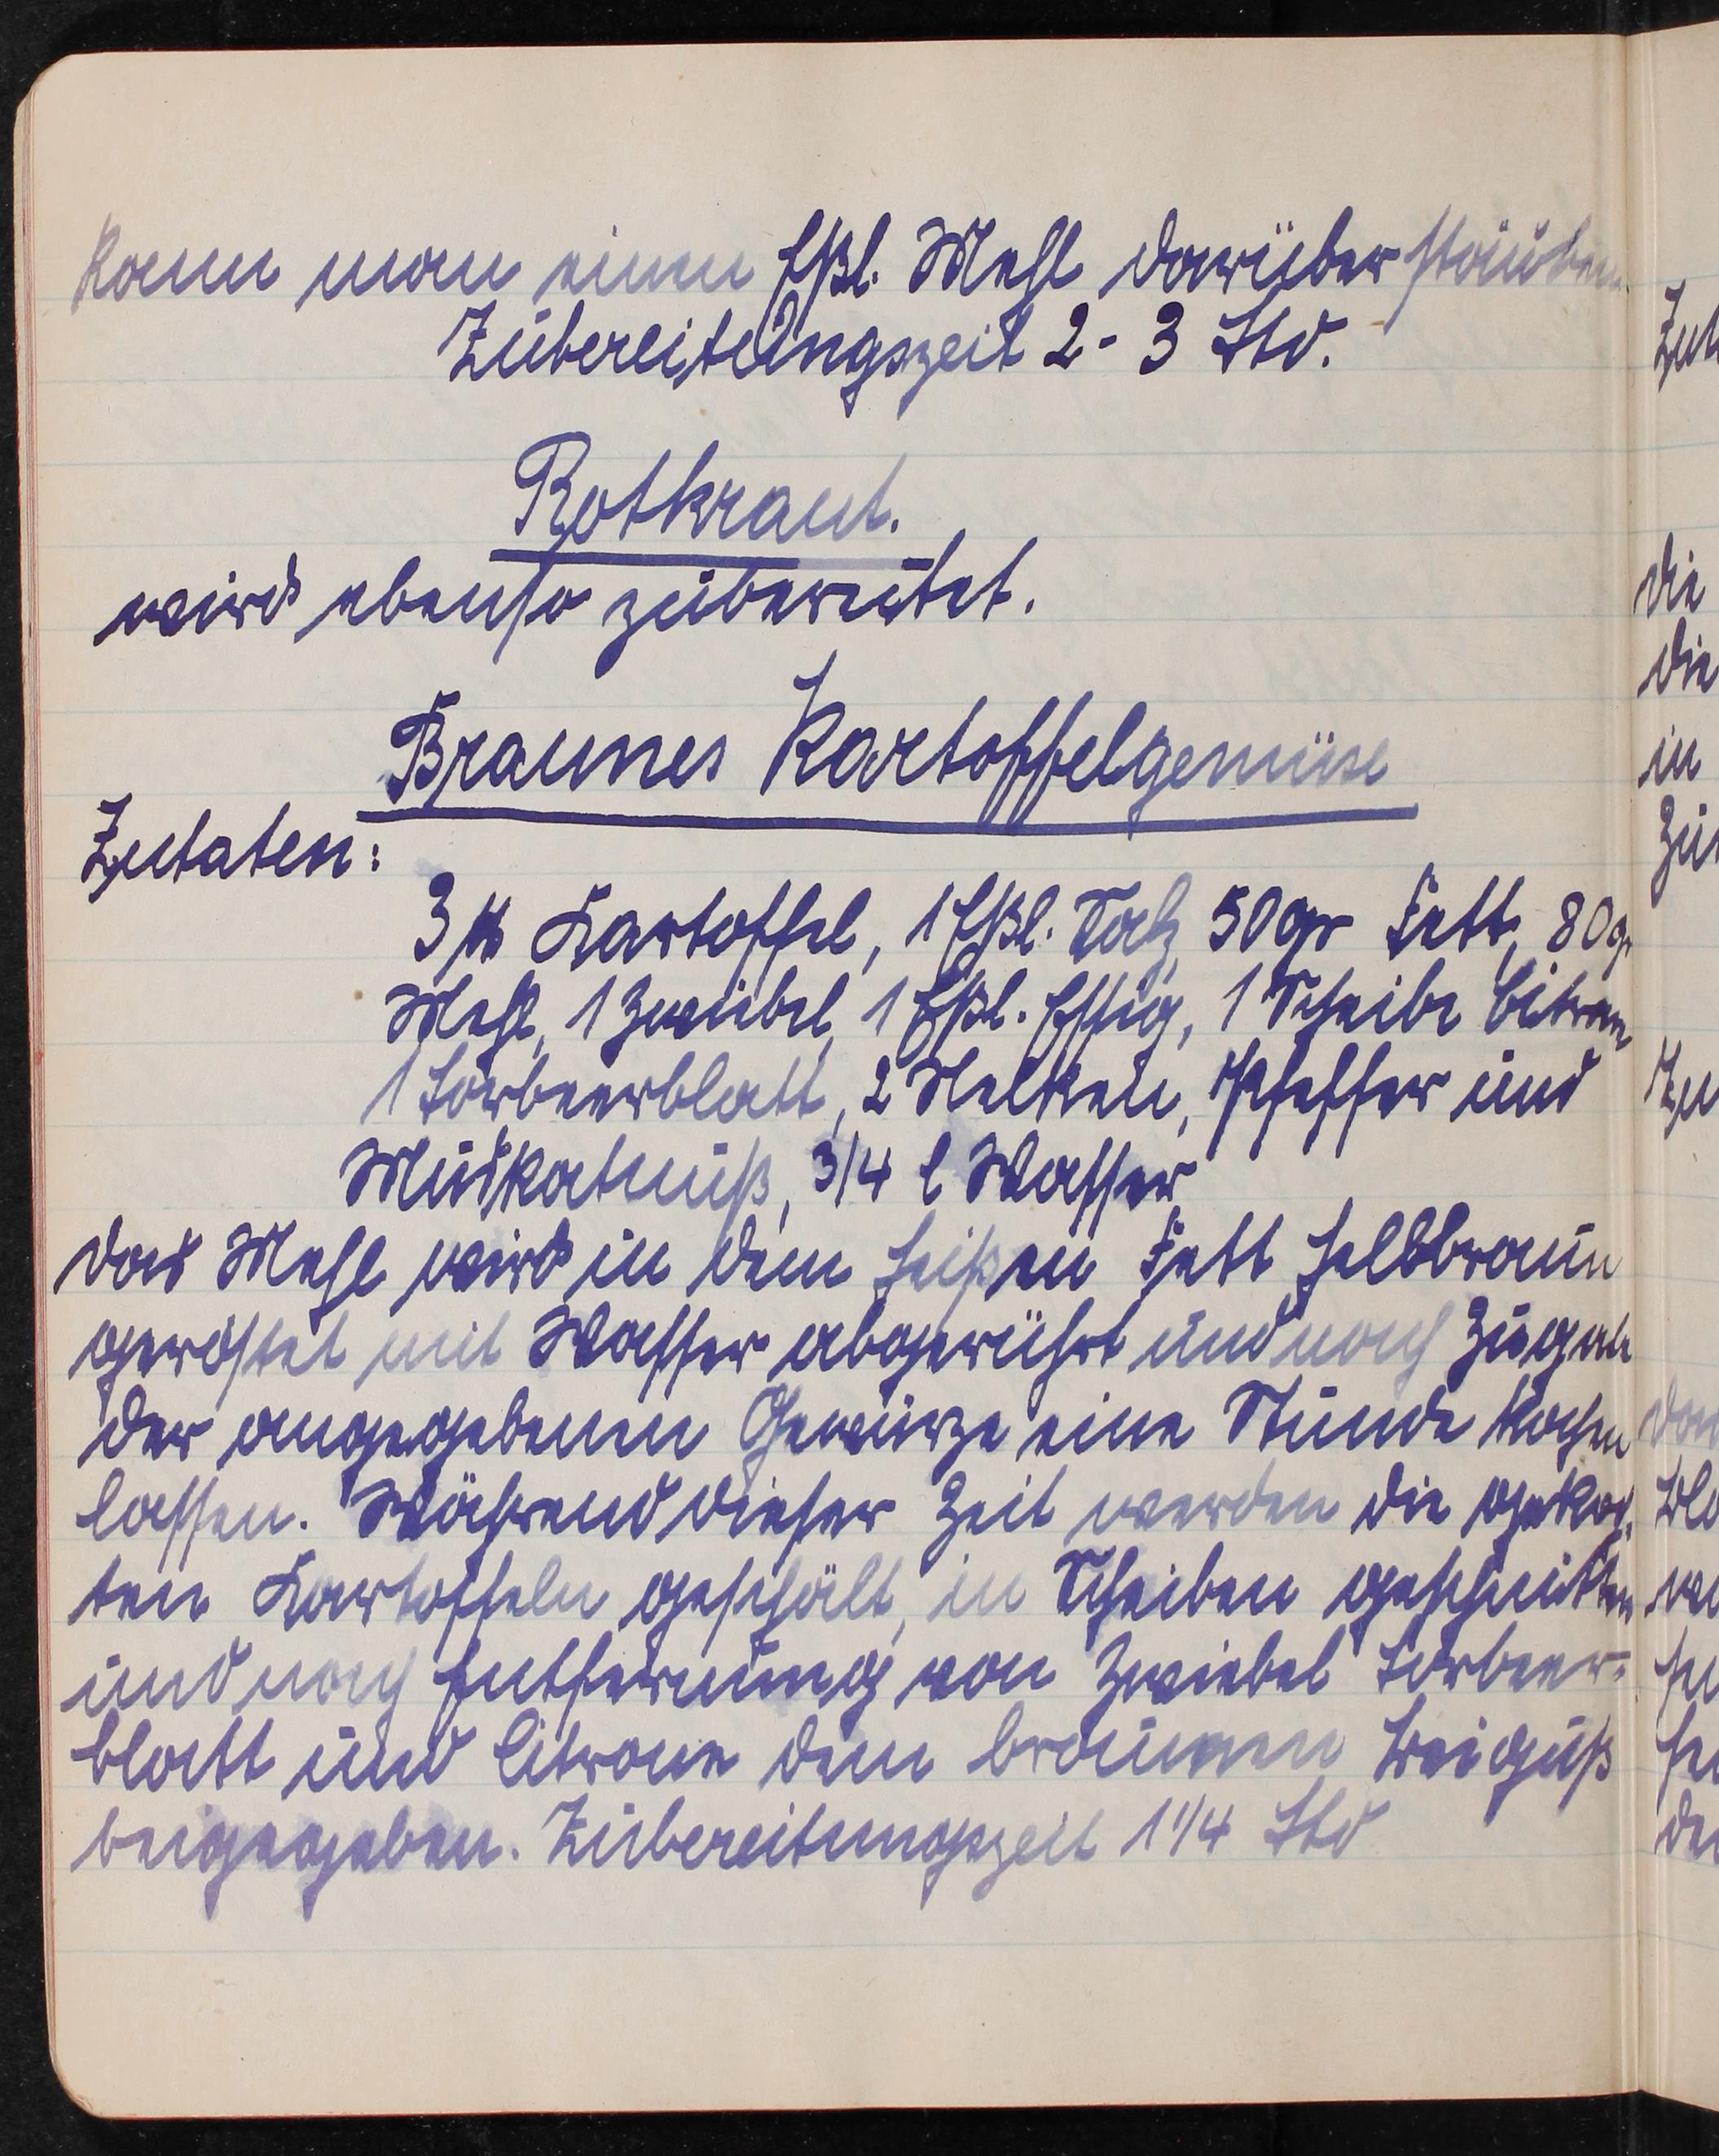 kann man einen Eßl. Mehl darüber stäuben
Zubereitungszeit 2-3 Std.
Rotkraut.
wird ebenso zubereitet.
Braunes Kartoffelgemüse
Zutaten:
3 ℔ Kartoffel, 1 Eßl. Salz, 50 gr Fett, 80 gr
Mehl, 1 Zwiebel, 1 Eßl. Essig, 1 Scheibe Citrone
1 Lorbeerblatt, 2 Nelken, Pfeffer und
Muskatnuß, 3/4 l Wasser
das Mehl wird in dem heißen Fett hellbraun
geröstet mit Wasser abgerührt und nach Zugabe
der angegebenen Gewürze eine Stunde kochen
lassen. Während dieser Zeit werden die gekoch-
ten Kartoffeln geschält, in Scheiben geschnitten
und nach Entfernung von Zwiebel Lorbeer-
blatt und Citrone dem braunen Beiguß
beigegeben. Zubereitungszeit 1 1/4 Std